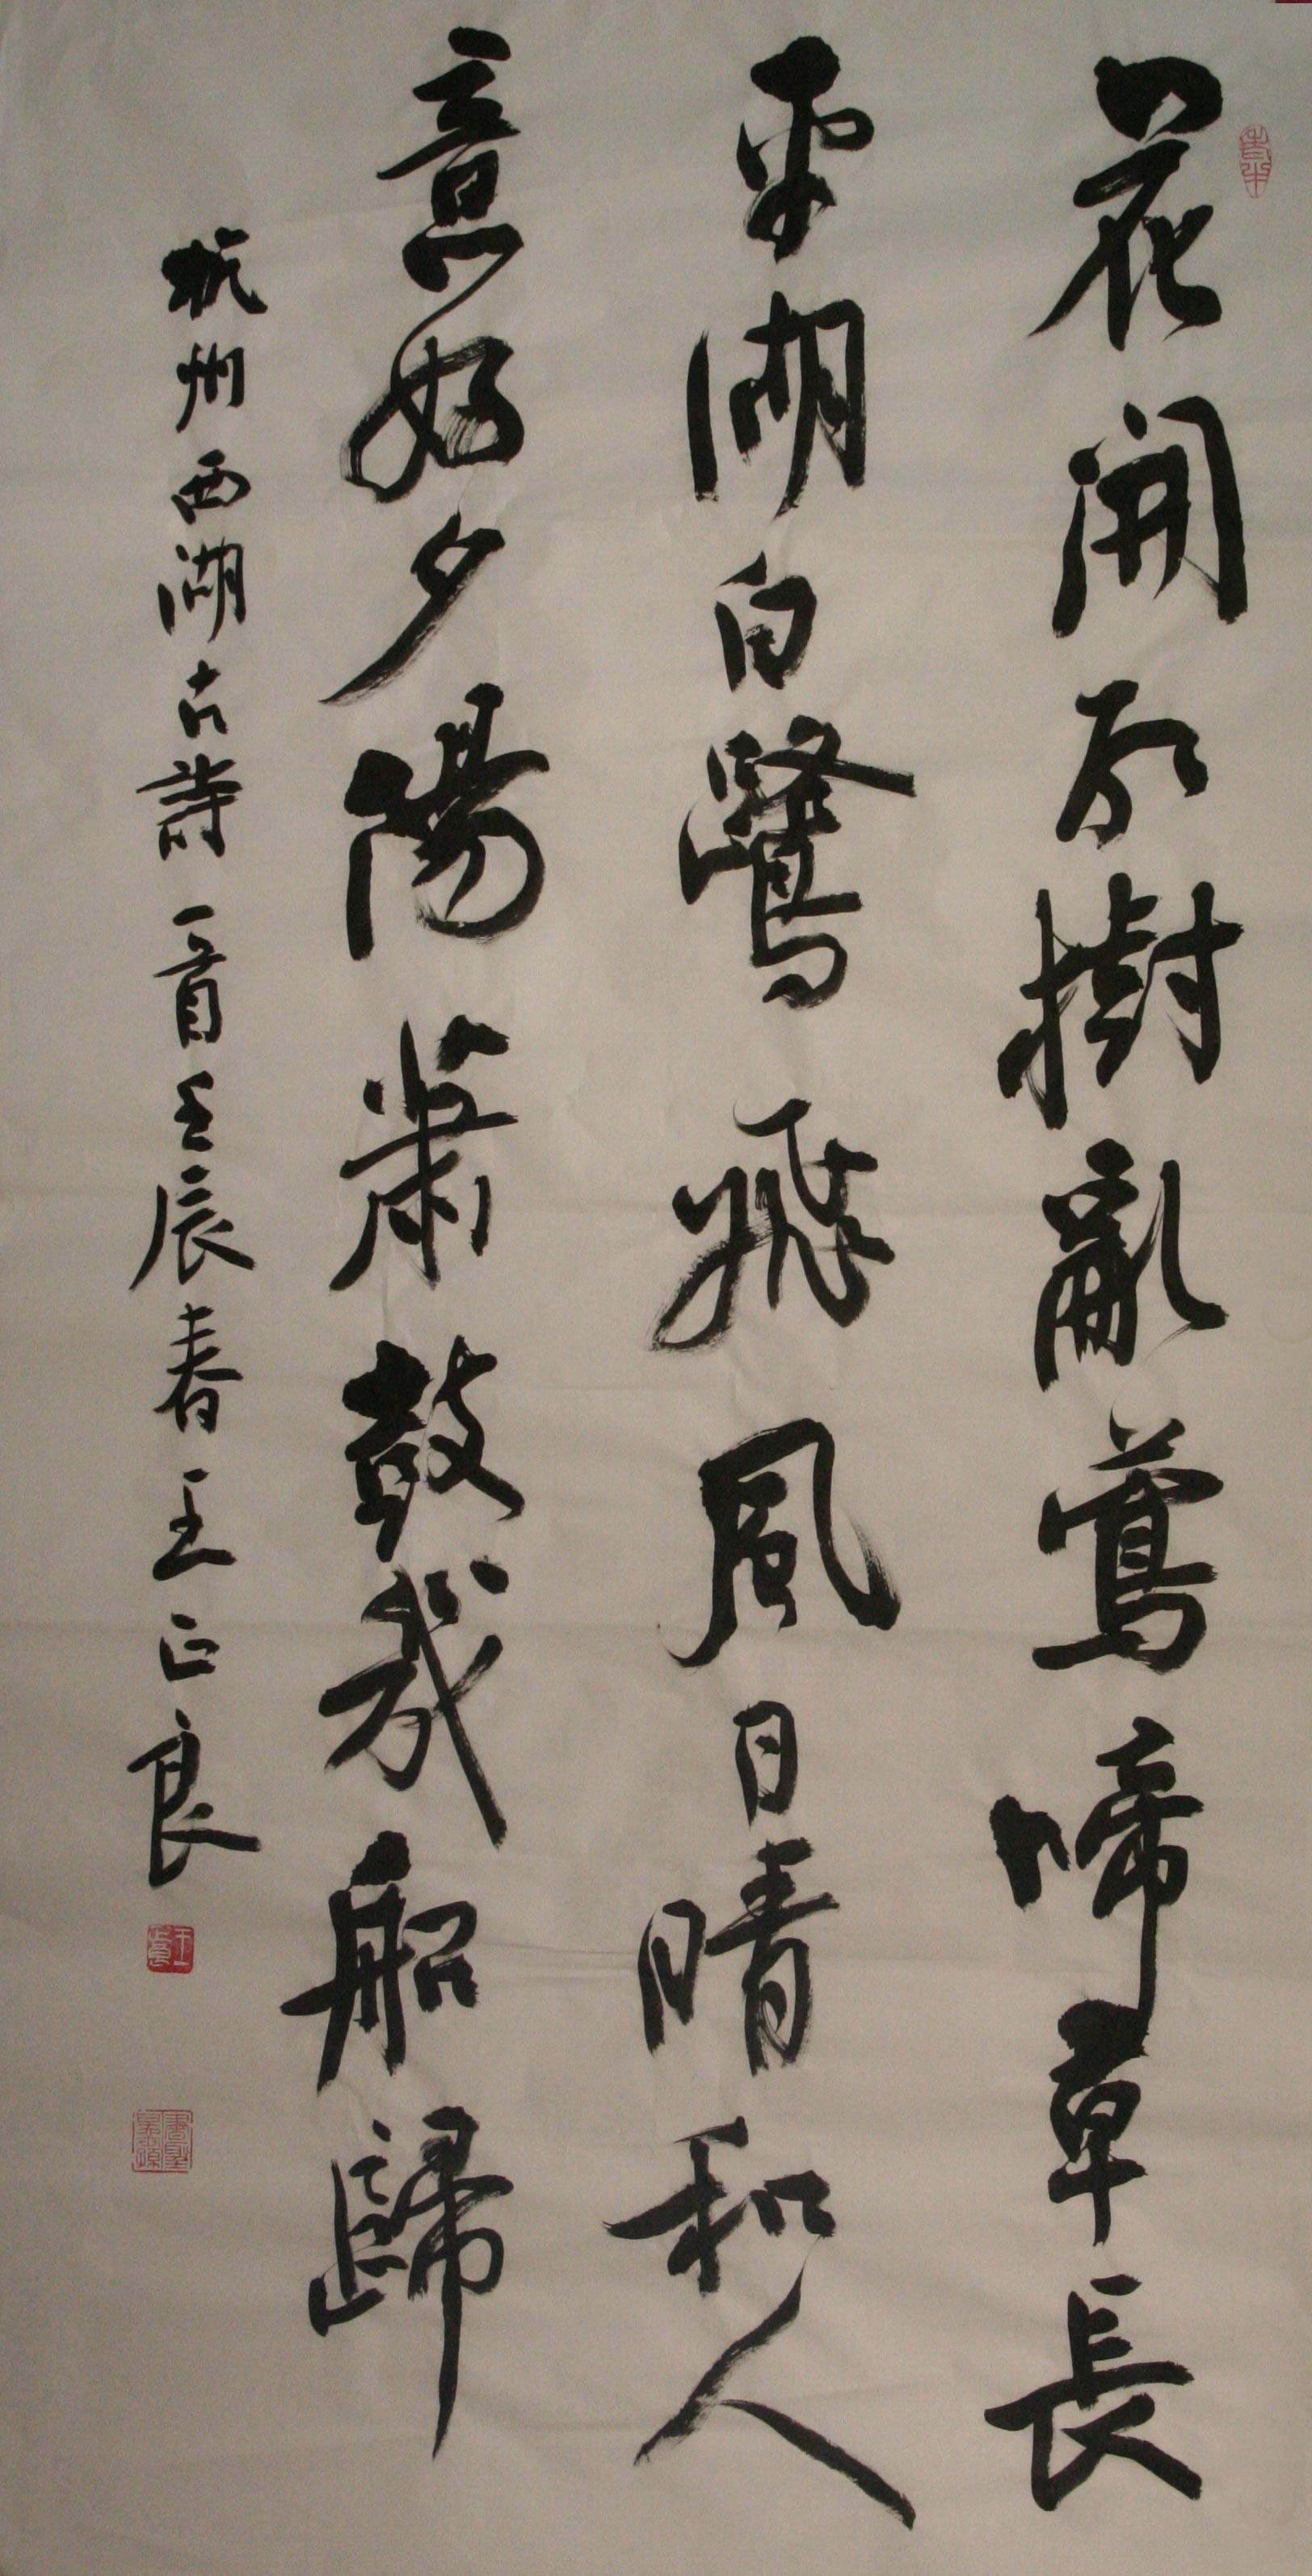 花開紅樹亂鶯啼草長
平湖白鷺飛風日晴和人
意好夕陽簫鼓幾船歸
杭州西湖古詩一首壬辰春王正良